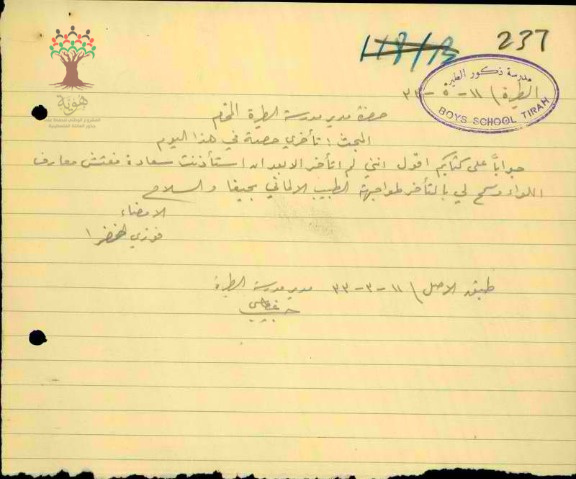 118/13
237
مدرسة ذكور الطيرة
BOYS SCHOOL TIRAH
هوية
الطيرة / ١١-٥-٣٣
حضرة مدير مدرسة الطيرة المحترم
البحث: تأخري حصة في هذا اليوم
جواباً على كتابكم اقول انني لم اتأخر الا بعد ان استأذنت سعادة مفتش معارف
اللواء وسمح لي بالتأخر لمواجهة الطبيب الالماني بحيفا والسلام
الامضاء
فوزي الخضرا
طبق الاصل / ١١-٣-٣٣ مدير مدرسة الطيرة